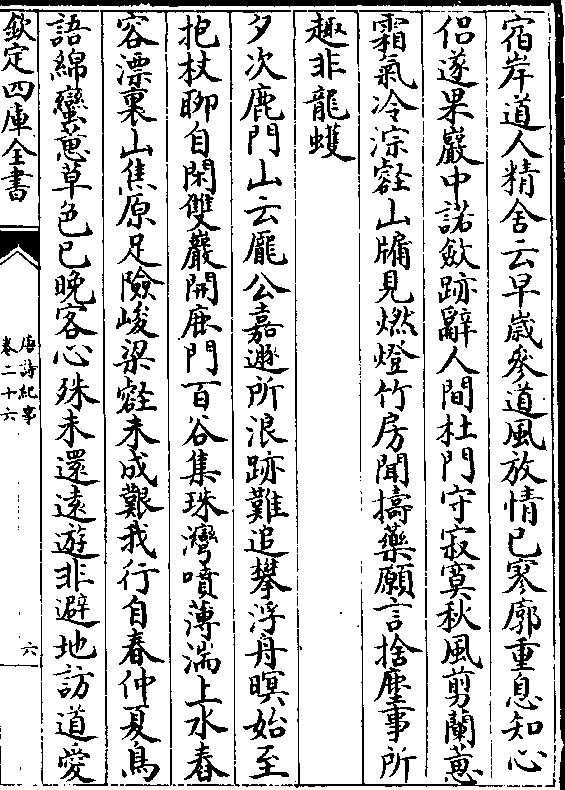 宿岸道人精舍云早歲參道風放情已寥廓重息知心
侣遂果巖中諾斂跡辭人間杜門守寂寞秋風剪蘭蕙
霜氣冷淙壑山牖見燃燈竹房聞擣藥願言捨塵事所
趣非龍蠖
夕次鹿門山云龐公嘉遯所浪跡難追攀浮舟暝始至
抱杖聊自閑雙巖開鹿門百谷集珠灣噴薄湍上水舂
容漂裏山焦原足險峻梁壑未成艱我行自春仲夏鳥
語綿蠻蕙草色已晚客心殊未還遠遊非避地訪道愛
欽定四庫全書
唐詩紀事
卷二十六
六